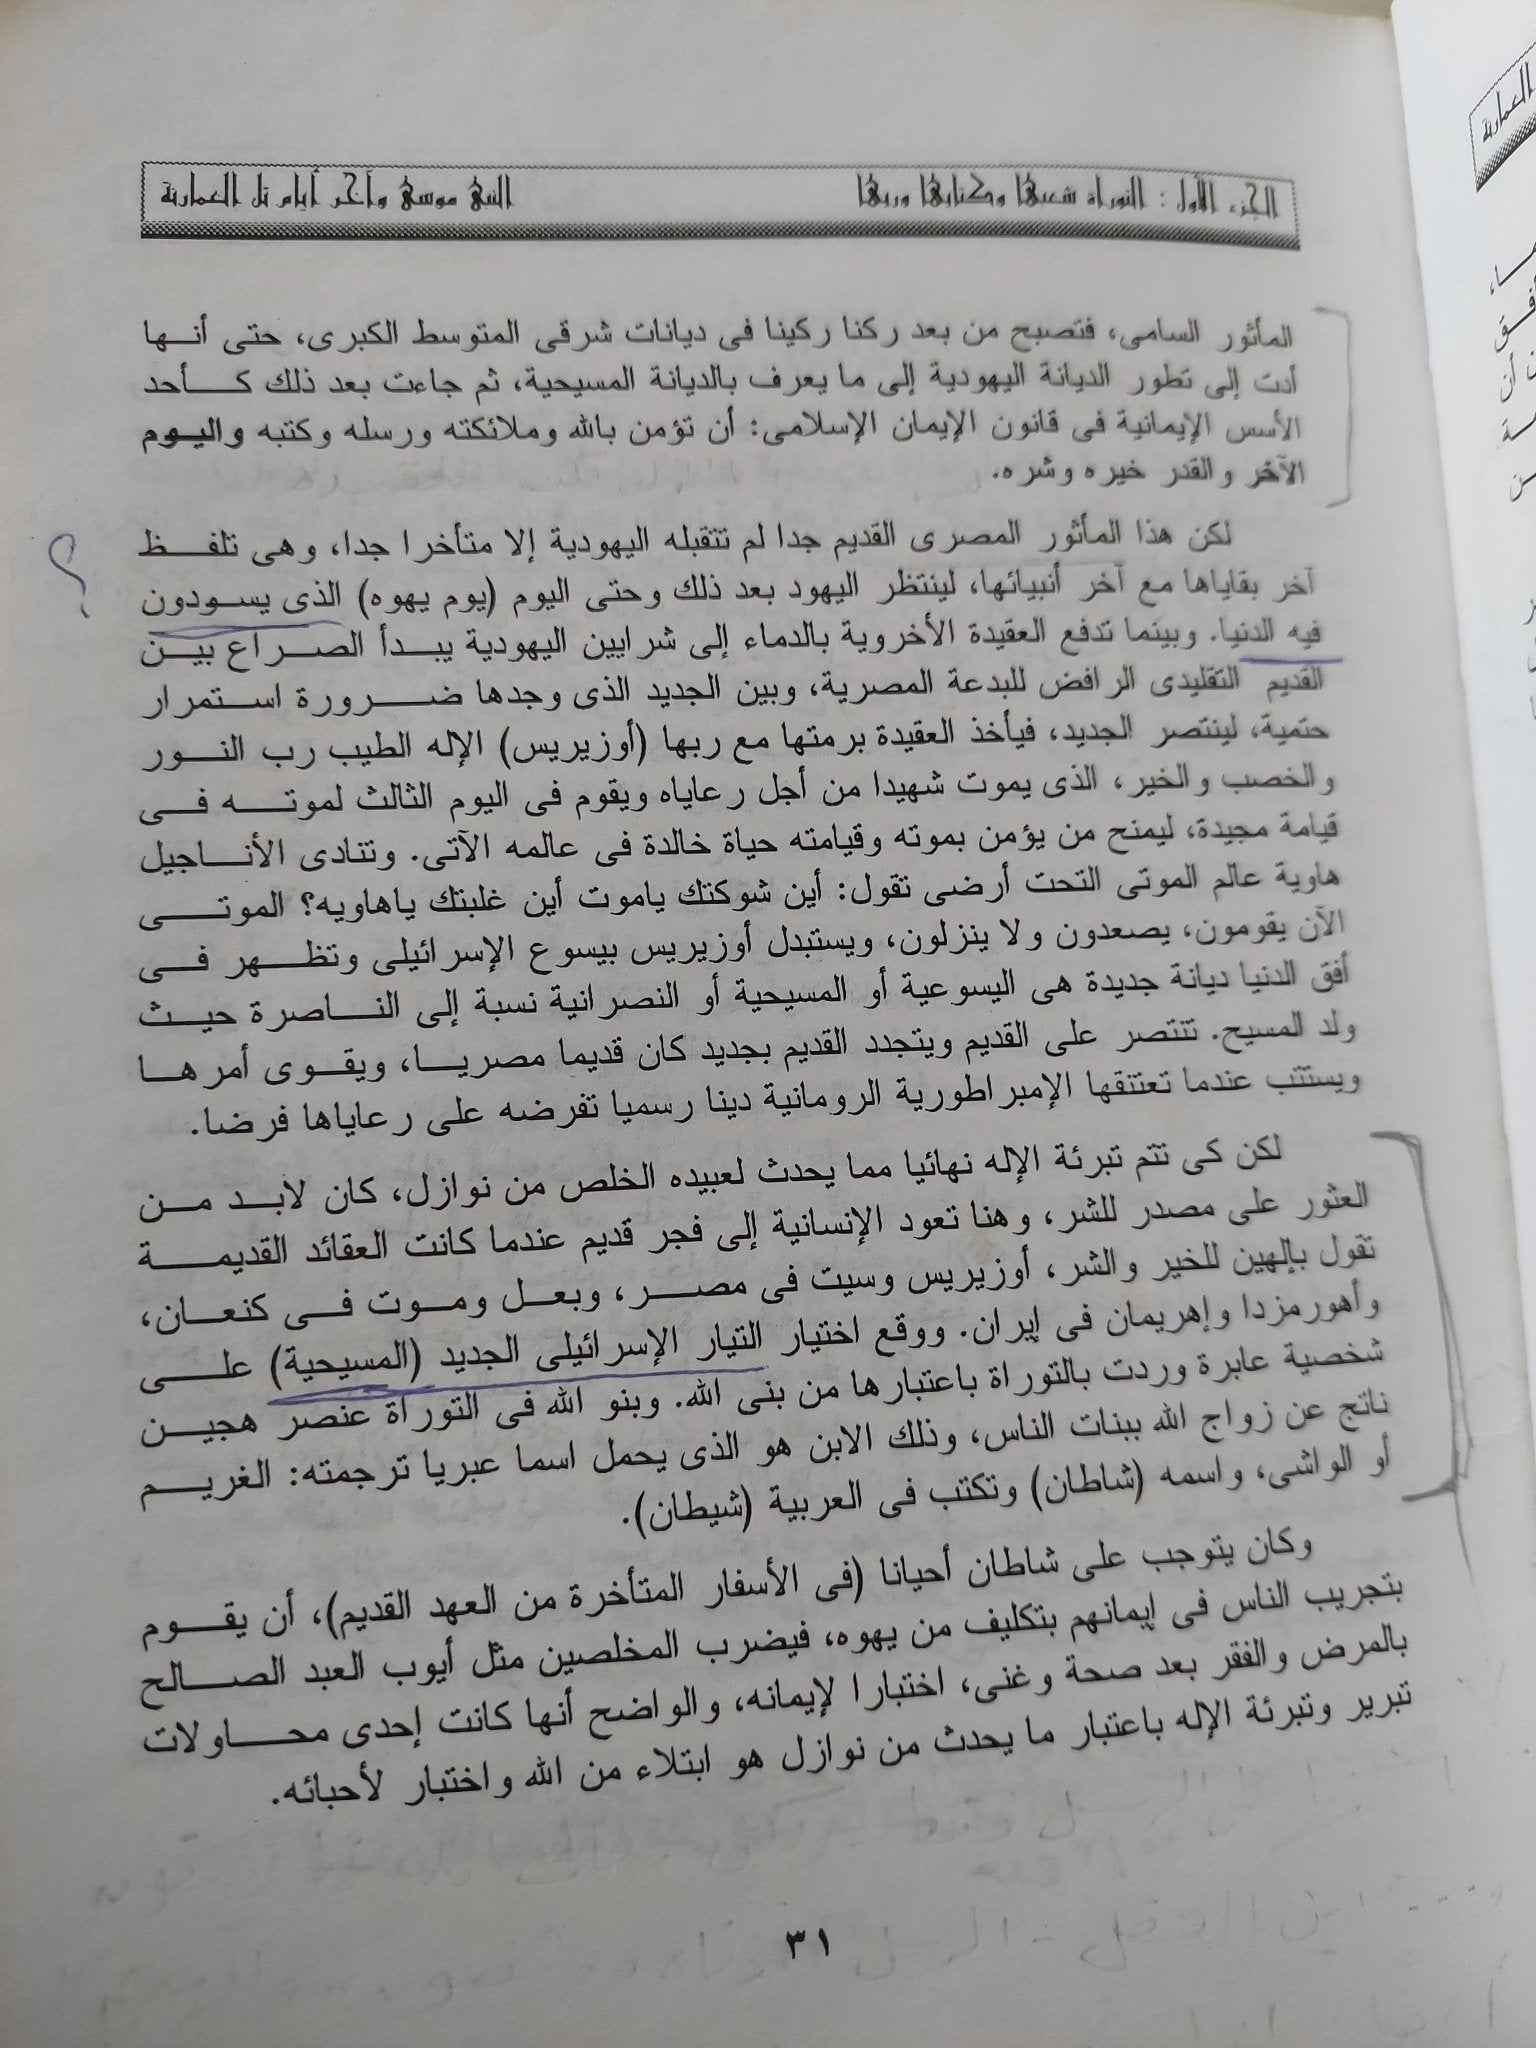 الجزء الأول : التوراة شعبها وكتابها وربها
النبى موسى وآخر أيام تل العمارنة
العمارنة
المأثور السامى، فتصبح من بعد ركنا ركينا فى ديانات شرقى المتوسط الكبرى، حتى أنها
أدت إلى تطور الديانة اليهودية إلى ما يعرف بالديانة المسيحية، ثم جاءت بعد ذلك كأحد
الأسس الإيمانية فى قانون الإيمان الإسلامى: أن تؤمن بالله وملائكته ورسله وكتبه واليوم
الآخر والقدر خيره وشره.
لكن هذا المأثور المصرى القديم جدا لم تتقبله اليهودية إلا متأخرا جدا، وهى تلفظ
آخر بقاياها مع آخر أنبيائها، لينتظر اليهود بعد ذلك وحتى اليوم (يوم يهوه) الذى يسودون
فيه الدنيا. وبينما تدفع العقيدة الأخروية بالدماء إلى شرايين اليهودية يبدأ الصراع بين
القديم التقليدى الرافض للبدعة المصرية، وبين الجديد الذى وجدها ضرورة استمرار
حتمية، لينتصر الجديد، فيأخذ العقيدة برمتها مع ربها (أوزيريس) الإله الطيب رب النور
والخصب والخير، الذى يموت شهيدا من أجل رعاياه ويقوم فى اليوم الثالث لموته فى
قيامة مجيدة، ليمنح من يؤمن بموته وقيامته حياة خالدة فى عالمه الآتى. وتنادى الأناجيل
هاوية عالم الموتى التحت أرضى تقول: أين شوكتك ياموت أين غلبتك ياهاويه؟ الموتى
الآن يقومون، يصعدون ولا ينزلون، ويستبدل أوزيريس بيسوع الإسرائيلى وتظهر فى
أفق الدنيا ديانة جديدة هى اليسوعية أو المسيحية أو النصرانية نسبة إلى الناصرة حيث
ولد المسيح. تنتصر على القديم ويتجدد القديم بجديد كان قديما مصريا، ويقوى أمرها
ويستتب عندما تعتنقها الإمبراطورية الرومانية دينا رسميا تفرضه على رعاياها فرضا.
لكن كى تتم تبرئة الإله نهائيا مما يحدث لعبيده الخلص من نوازل، كان لابد من
العثور على مصدر للشر، وهنا تعود الإنسانية إلى فجر قديم عندما كانت العقائد القديمة
تقول بإلهين للخير والشر، أوزيريس وسيت فى مصر، وبعل وموت فى كنعان،
وأهورمزدا وإهريمان فى إيران. ووقع اختيار التيار الإسرائيلى الجديد (المسيحية) على
شخصية عابرة وردت بالتوراة باعتبارها من بنى الله. وبنو الله فى التوراة عنصر هجين
ناتج عن زواج الله ببنات الناس، وذلك الابن هو الذى يحمل اسما عبريا ترجمته: الغريم
أو الواشى، واسمه (شاطان) وتكتب فى العربية (شيطان).
وكان يتوجب على شاطان أحيانا (فى الأسفار المتأخرة من العهد القديم)، أن يقوم
بتجريب الناس فى إيمانهم بتكليف من يهوه، فيضرب المخلصين مثل أيوب العبد الصالح
بالمرض والفقر بعد صحة وغنى، اختبارا لإيمانه، والواضح أنها كانت إحدى محاولات
تبرير وتبرئة الإله باعتبار ما يحدث من نوازل هو ابتلاء من الله واختبار لأحبائه.
؟
٣١